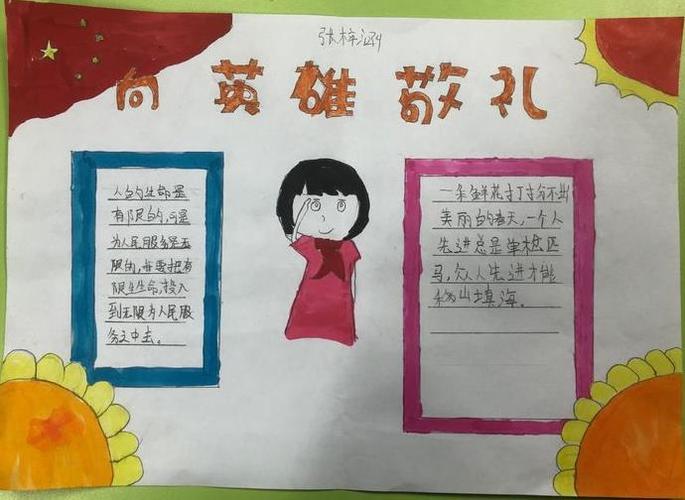 张梓涵
向英雄敬礼
人的生命是
有限的，可是
为人民服务是无
限的，我要把有
限生生命，投入
到无限为人民服
务之中去。
一朵鲜花打扮不出
美丽的春天，一个人
先进总是单枪匹
马，众人先进才能
移山填海。